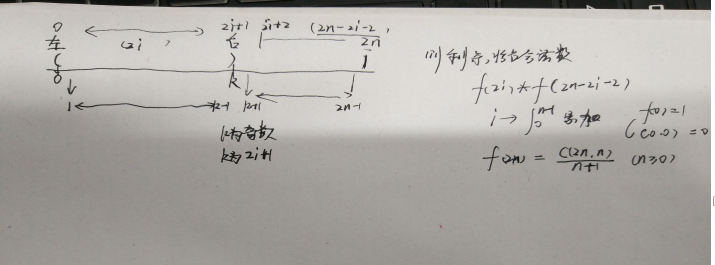 0 2i+1 2i+2 (2n-2i-2)
左 (2i) 右 2n
( ) )
0 k
1 k-1 k+1 2n-1
k为奇数
k为2i+1
f(2i)*f(2n-2i-2)
i→∫₀ⁿ⁻¹ 累加 f(0)=1
C(0,0)=0
f(2n) = C(2n,n)/n+1 (n≥0)